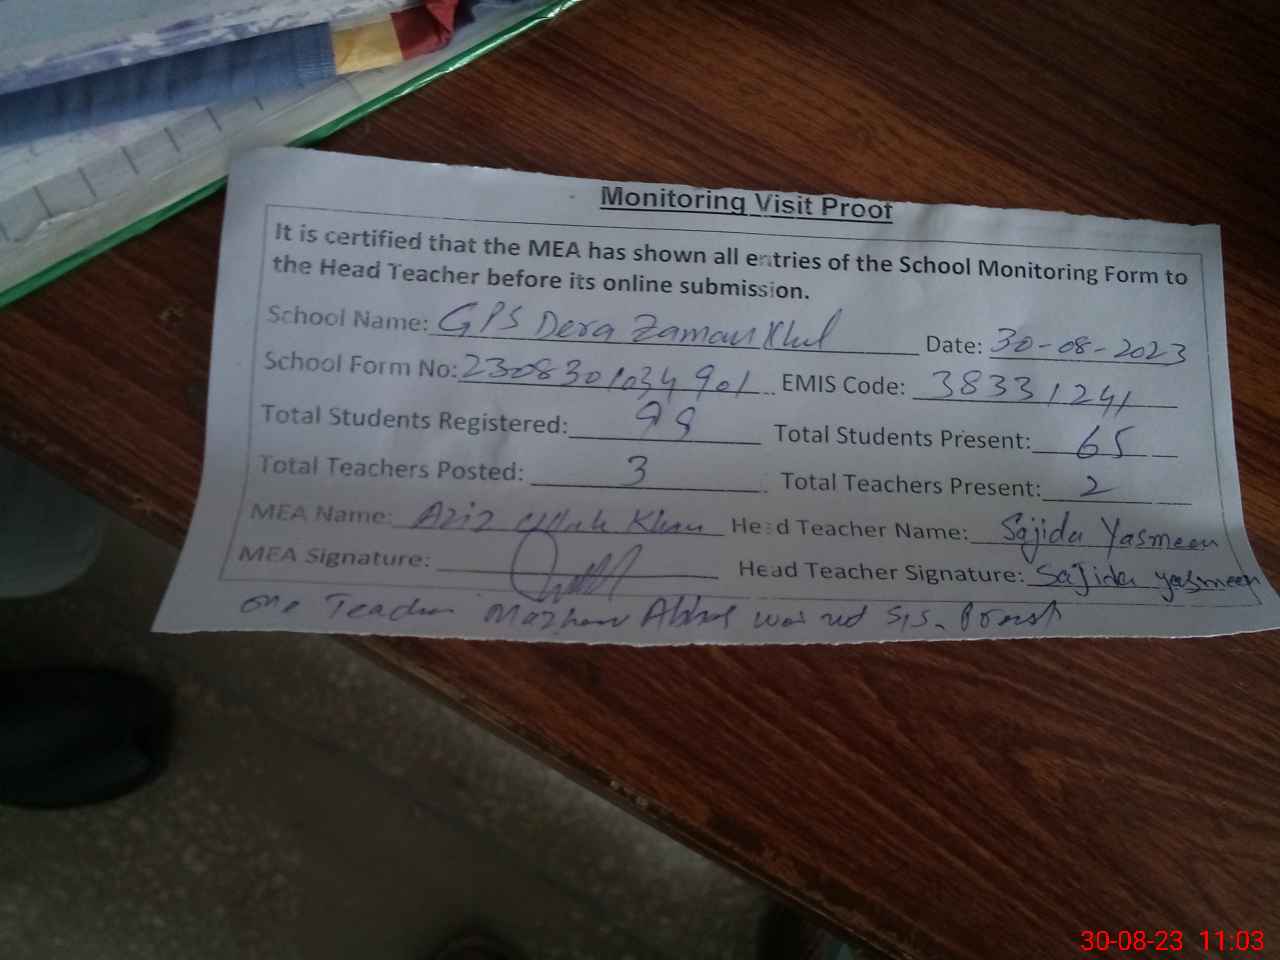 Monitoring Visit Proof
It is certified that the MEA has shown all entries of the School Monitoring Form to
the Head Teacher before its online submission.
School Name: GPS Dera Zaman Khel Date: 30-08-2023
School Form No: 2308301034901 EMIS Code: 38331241
Total Students Registered: 98 Total Students Present: 65
Total Teachers Posted: 3 Total Teachers Present: 2
MEA Name: Aziz Ullah Khan Head Teacher Name: Sajida Yasmeen
MEA Signature: Head Teacher Signature: Sajida yasmeen
one Teacher Mazhar Abbas was
30-08-23 11:03